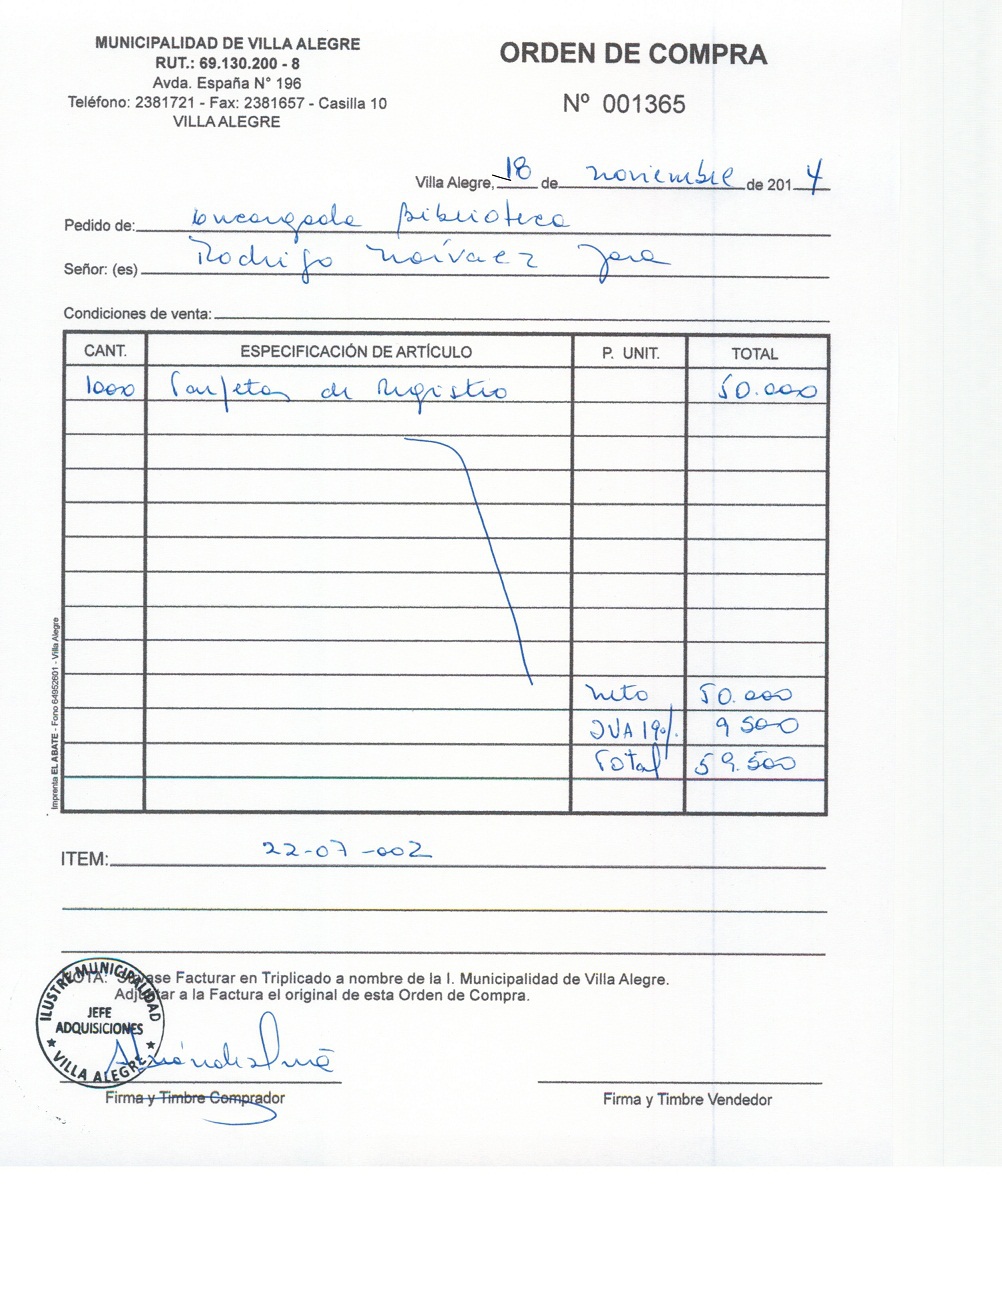 MUNICIPALIDAD DE VILLA ALEGRE
RUT.: 69.130.200 - 8
Avda. España N° 196
Teléfono: 2381721 - Fax: 2381657 - Casilla 10
VILLA ALEGRE
ORDEN DE COMPRA
Nº 001365
Villa Alegre, 18 de noviembre de 2014
Pedido de: Encargada Biblioteca
Señor: (es) Rodrigo Narváez Jara
Condiciones de venta:
CANT. ESPECIFICACIÓN DE ARTÍCULO P. UNIT. TOTAL
1000 Tarjetas de Registro 50.000
Neto 50.000
IVA 19% 9500
Total 59.500
Imprenta EL ABATE - Fono 64952601 - Villa Alegre
ITEM: 22-07-002
NOTA: Sírvase Facturar en Triplicado a nombre de la I. Municipalidad de Villa Alegre.
Adjuntar a la Factura el original de esta Orden de Compra.
ILUSTRE MUNICIPALIDAD
JEFE
ADQUISICIONES
VILLA ALEGRE
Firma y Timbre Comprador
Firma y Timbre Vendedor